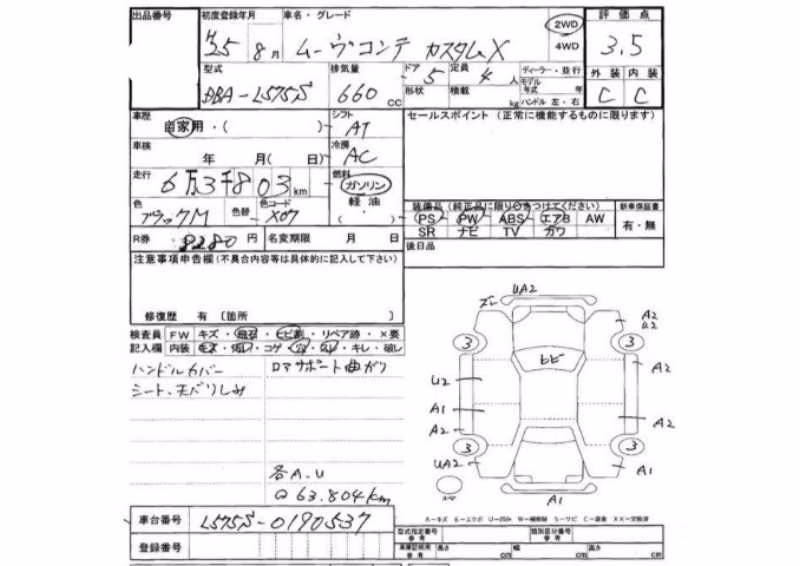 出品番号 初度登録年月 車名・グレード 2WD 評価点
H25 8月 ムーヴコンテ カスタムX 4WD 3.5
型式 排気量 ドア 定員 ディーラー・並行 外装 内装
DBA-L575S 660 CC 5 4人 モデル
形状 積載 kg 年式 年 ハンドル 左・右 C C
車歴 自家用・( ) シフト AT セールスポイント (正常に機能するものに限ります)
車検 年 月( 日) 冷房 AC
走行 6万3千803km 燃料 ガソリン
軽油
色 ブラックM 色替 色コード X07 ・( )
装備品 (純正品に限り○をつけてください) 新車保証書
PS PW ABS エアB AW 有・無
SR ナビ TV カワ
R券 8280 円 名変期限 月 日 後日品
注意事項申告欄(不具合内容等は具体的に記入して下さい)
修復歴 有 〔箇所 〕
検査員 FW キズ・飛石・ヒビ割・リペア跡・×要
記入欄 内装 キズ・汚レ・コゲ・穴・スレ・キレ・破レ
ハンドルカバー ロアサポート曲ガリ
シート、天バリしみ
各A.U
Q 63.804km
車台番号 L575S-0190537
登録番号
ズレ UA2
A2
U2
3 3
ヒビ A2
U2
A1
A2 A2
3 3
UA2 A1
A1
A-キズ E-エクボ
型式指定番号 参考 類別区分番号 参考
参考 長さ cm 幅 cm 高さ cm